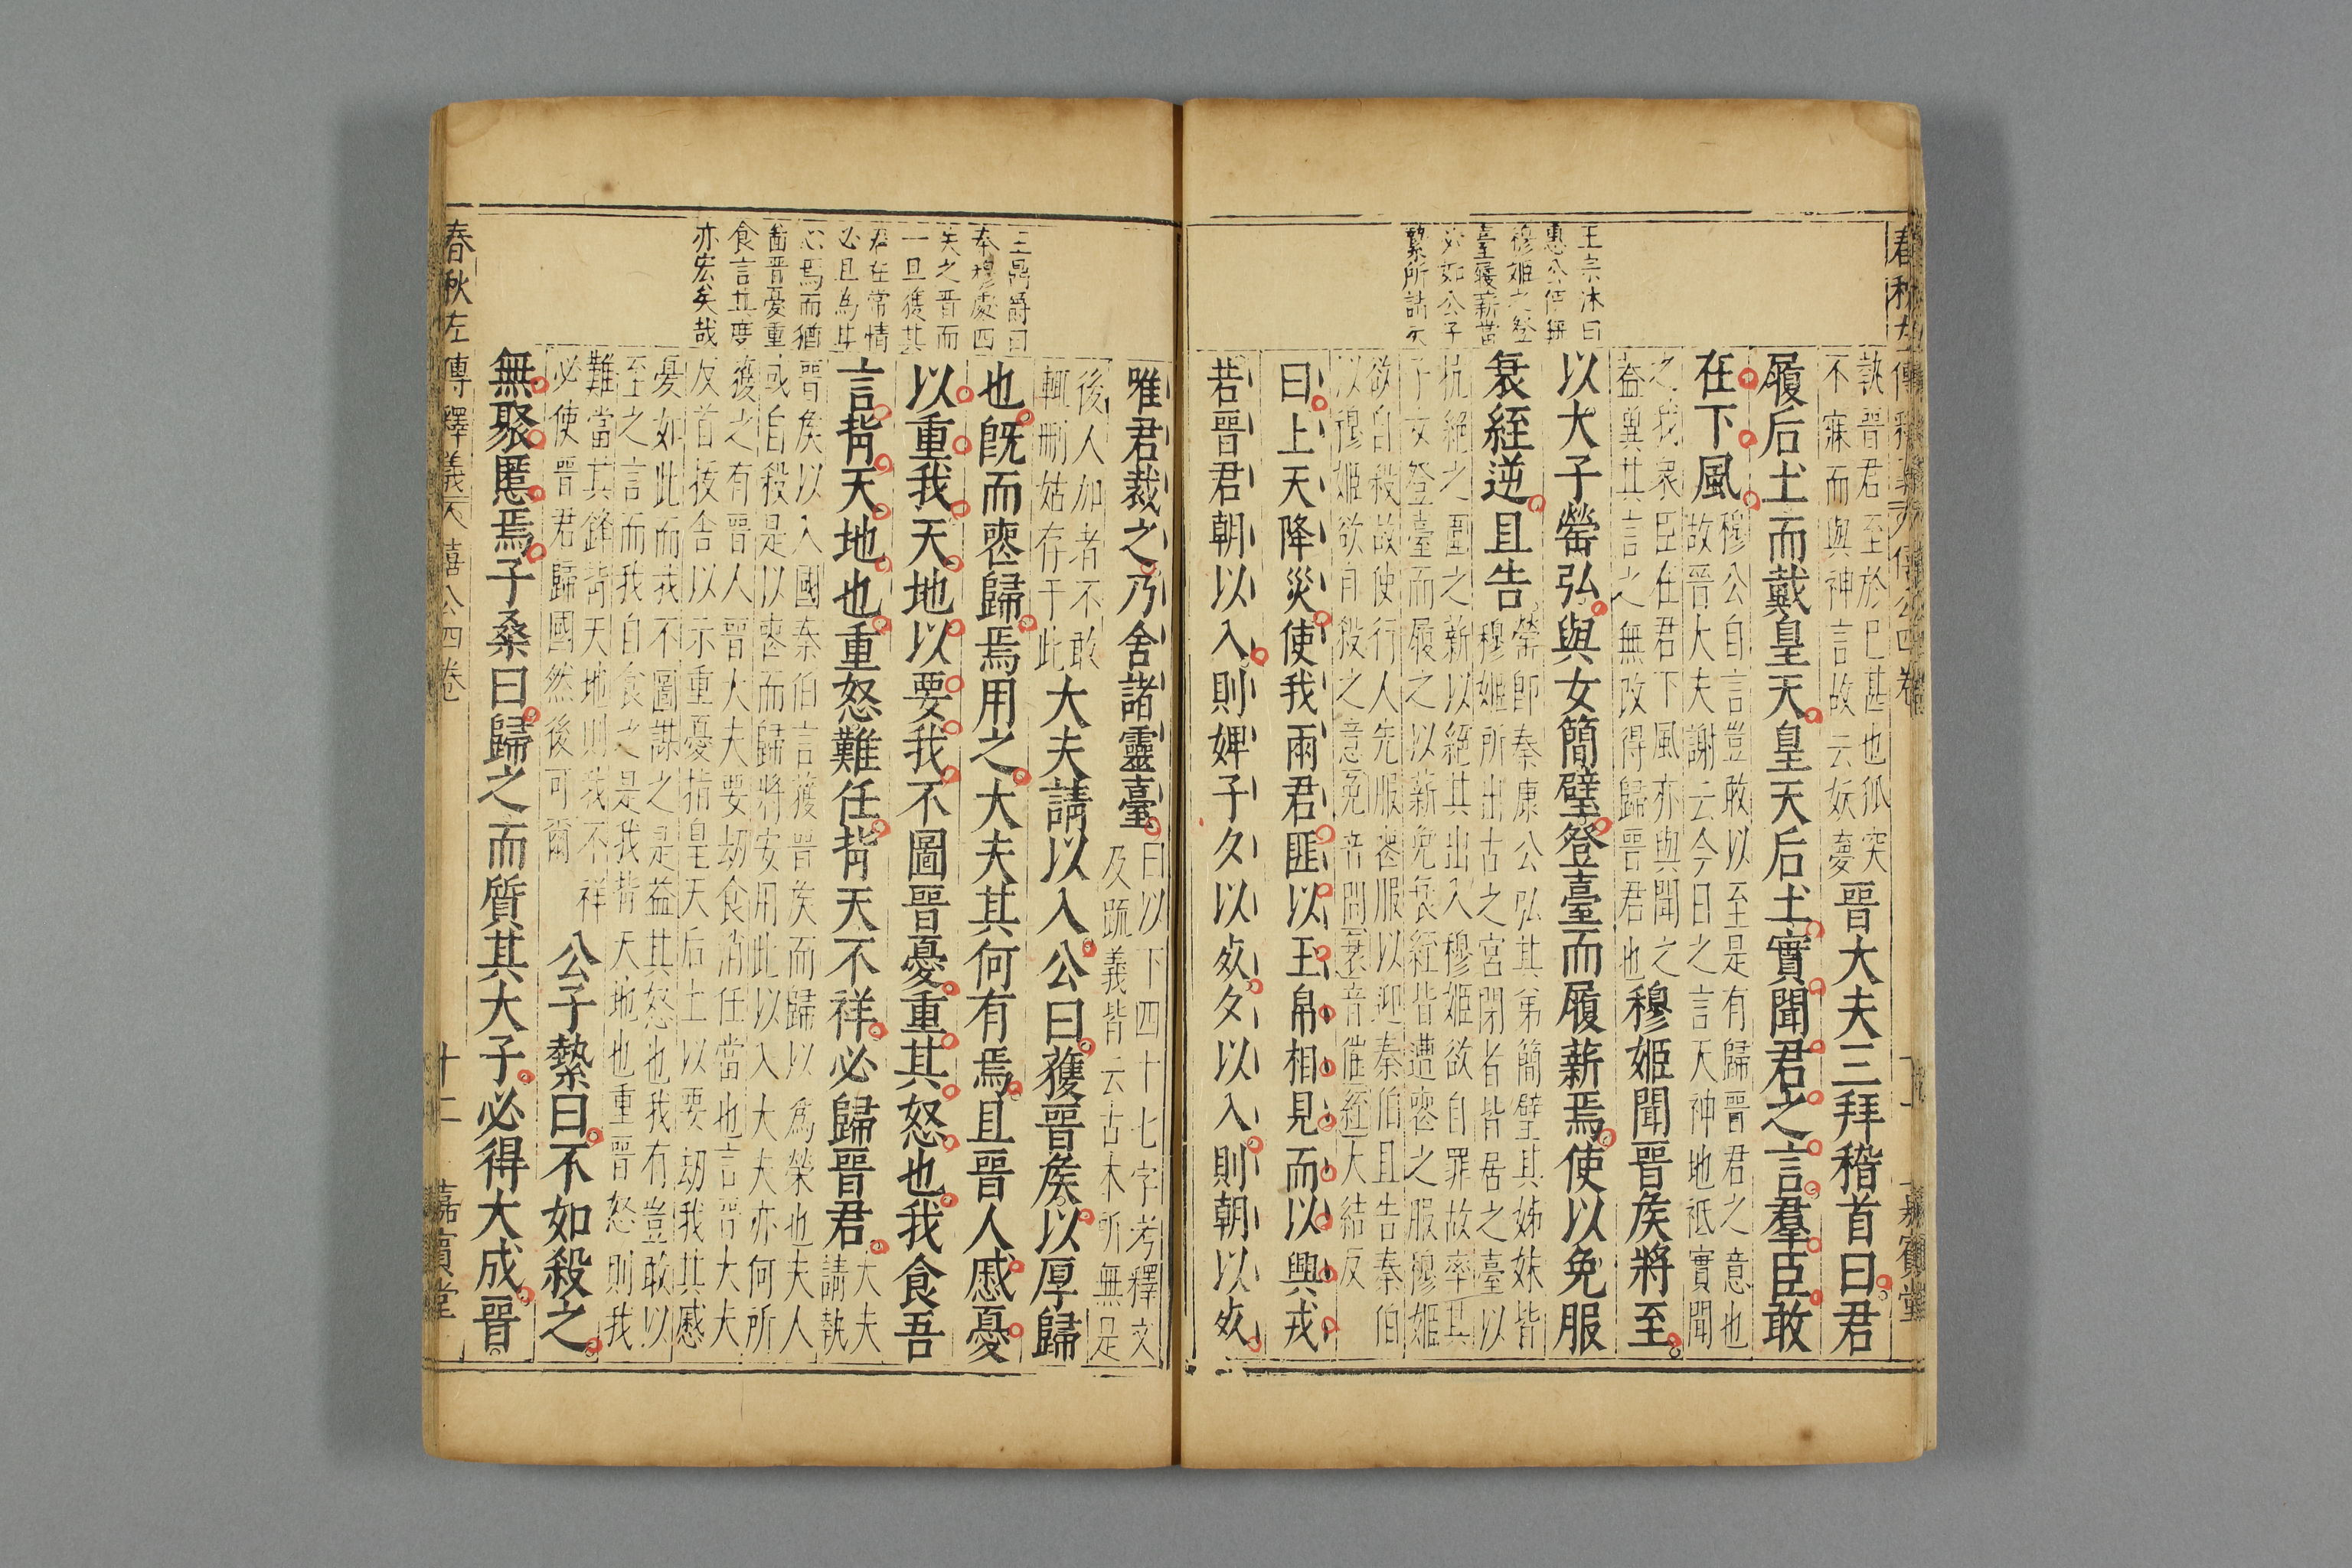 春秋左傳釋義 僖公四卷 嘉賓堂
王宗沐曰
惠公
穆姬之登
臺履薪當
必如公子
縶所請
執晉君至於已甚也狐突
不寐而與神言故云妖夢
晉大夫三拜稽首曰君
履后土而戴皇天皇天后土實聞君之言羣臣敢
在下風
穆公自言豈敢以至是有歸晉君之意也
故晉大夫謝云今日之言天神地祗實聞
之我衆臣在君下風亦與聞之
益冀其言之無改得歸晉君也
穆姬聞晉矦將至
以大子罃弘與女簡璧登臺而履薪焉使以免服
衰絰逆且告
罃即秦康公弘其弟簡璧其姊妹皆
穆姬所出古之宮閉者皆居之臺以
抗絕之圍之薪以絕其出入穆姬欲自罪故率其
子女登臺而履之以薪免衰絰皆遭喪之服穆姬
欲自殺故使行人先服喪服以迎秦伯且告秦伯
以穆姬欲自殺之意免音問衰音催絰大結反
曰上天降災使我兩君匪以玉帛相見而以興戎
若晉君朝以入則婢子夕以死夕以入則朝以死
唯君裁之乃舍諸靈臺
曰以下四十七字考釋文
及疏義皆云古本所無是
後人加者不敢
輒刪姑存于此
大夫請以入公曰獲晉矦以厚歸
也旣而喪歸焉用之大夫其何有焉且晉人慼憂
以重我天地以要我不圖晉憂重其怒也我食吾
言背天地也重怒難任背天不祥必歸晉君
大夫
請執
晉矦以入國秦伯言獲晉矦而歸以為榮也夫人
或自殺是以喪而歸將安用此以入大夫亦何所
獲之有晉人晉大夫要劫食消任當也言晉大夫
反首拔舍以示重憂指皇天后土以要劫我其慼
憂如此而我不圖謀之是益其怒也我有豈敢以
至之言而我自食之是我背天地也重晉怒則我
難當其鋒背天地則我不祥
必使晉君歸國然後可爾
公子縶曰不如殺之
無聚慝焉子桑曰歸之而質其大子必得大成晉
王鼎爵曰
秦穆處四
失之晉而
一旦獲其
君在常情
必且為甘
心焉而猶
啬晉憂重
食言其度
亦宏矣哉
春秋左傳釋義大 僖公四卷 十二 嘉賓堂